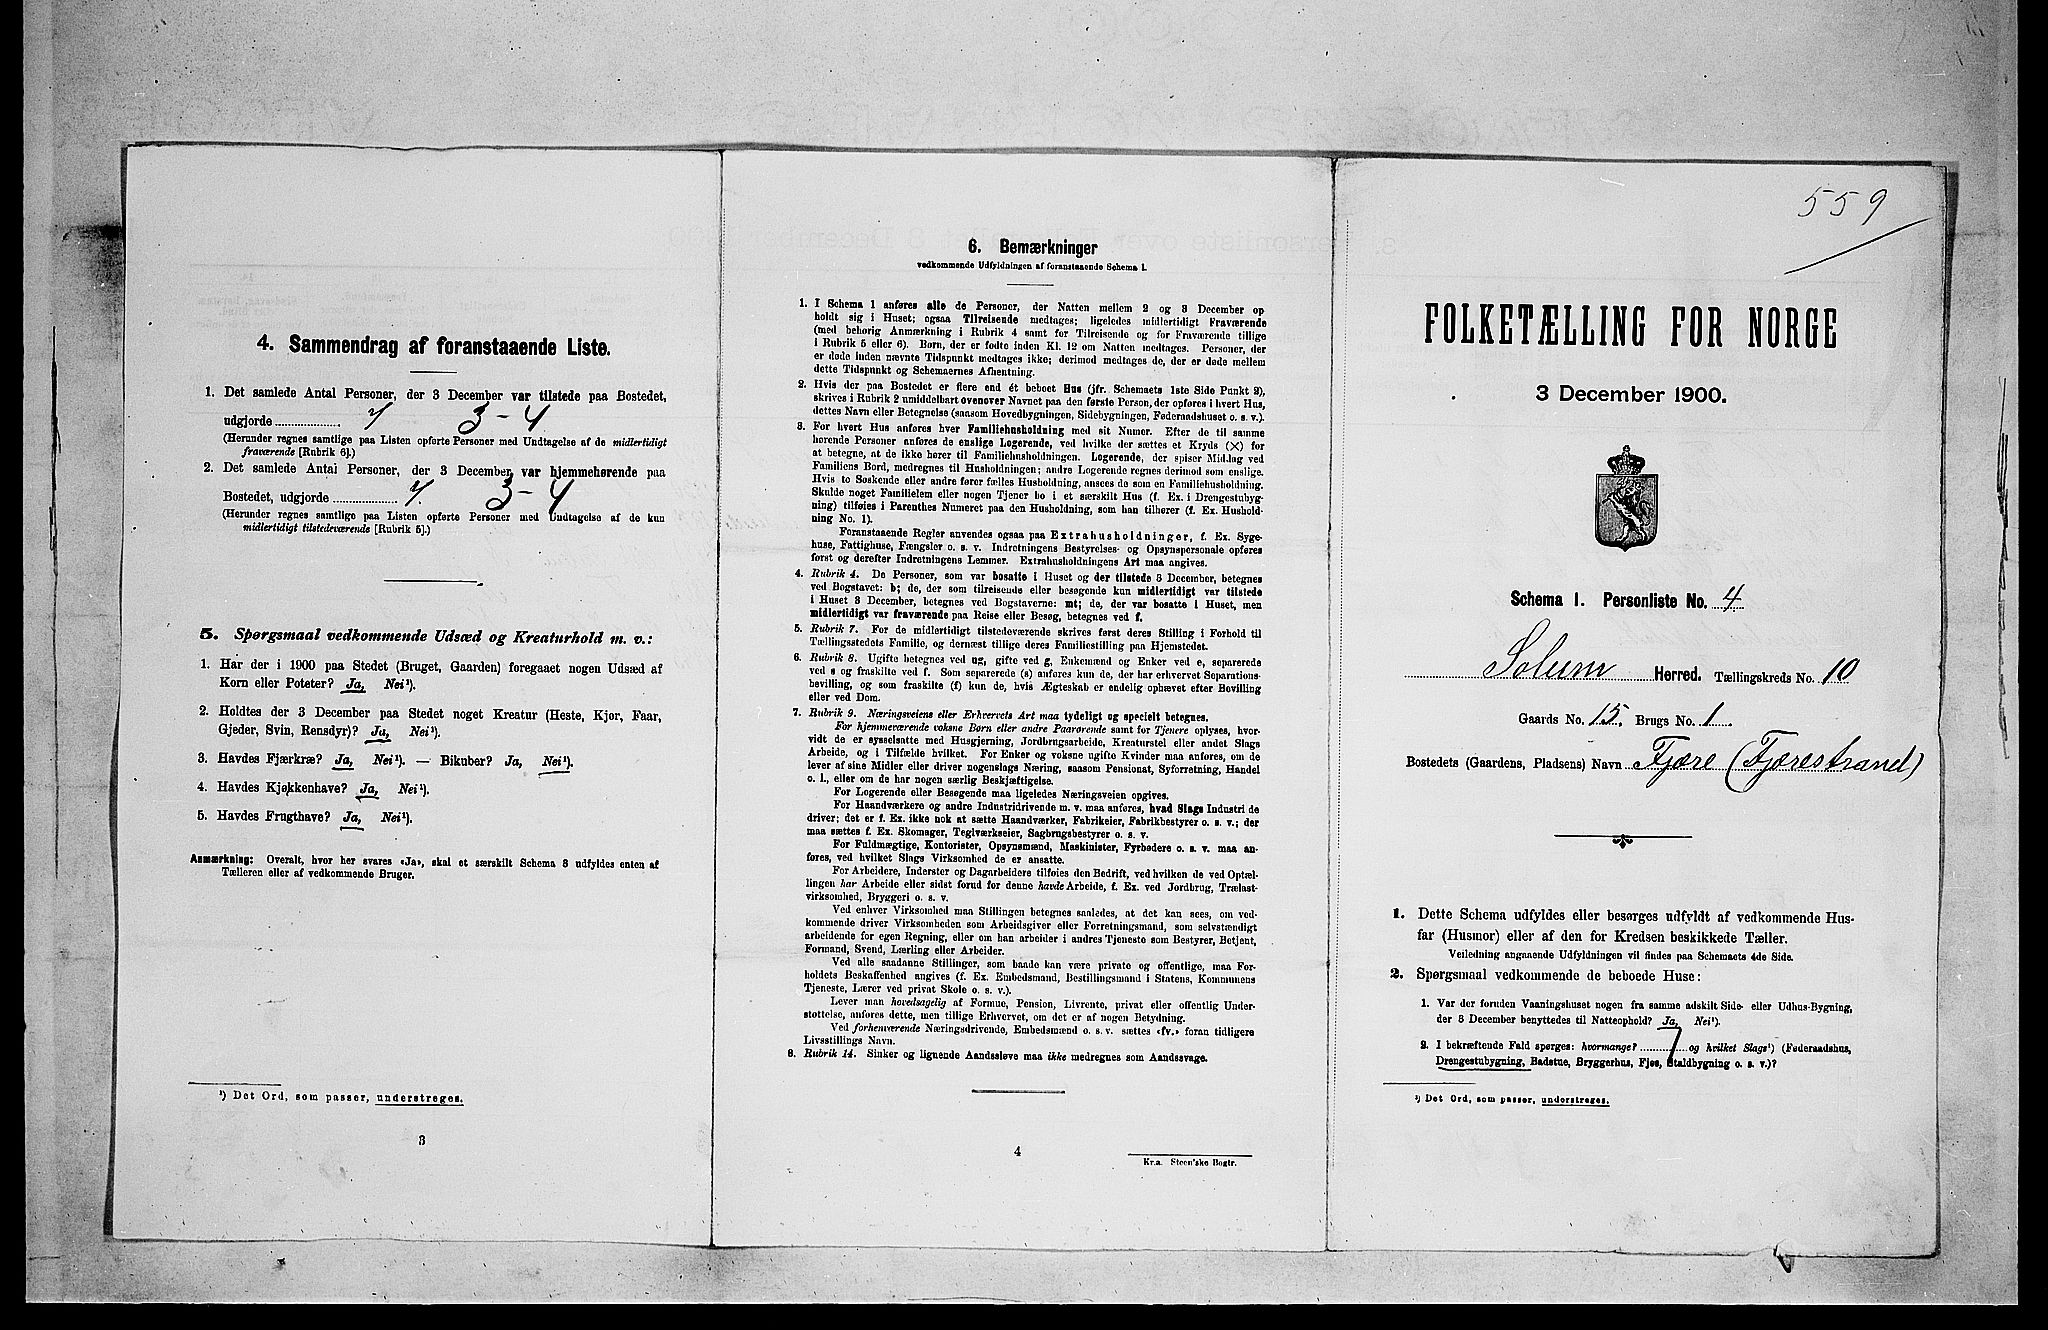 4. Sammendrag af foranstaaende Liste.
1. Det samlede Antal Personer, der 3 December var tilstede paa Bostedet,
udgjorde 7 3-4
(Herunder regnes samtlige paa Listen opførte Personer med Undtagelse af de midlertidigt
fraværende [Rubrik 6].)
2. Det samlede Antal Personer, der 3 December var hjemmehørende paa
Bostedet, udgjorde 7. 3-4
(Herunder regnes samtlige paa Listen opførte Personer med Undtagelse af de kun
midlertidigt tilstedeværende [Rubrik 5].)
5. Spørgsmaal vedkommende Udsæd og Kreaturhold m. v.:
1. Har der i 1900 paa Stedet (Bruget, Gaarden) foregaaet nogen Udsæd af
Korn eller Poteter? Ja, Nei¹).
2. Holdtes der 3 December paa Stedet noget Kreatur (Heste, Kjør, Faar,
Gjeder, Svin, Rensdyr)? Ja, Nei¹).
3. Havdes Fjærkræ? Ja, Nei¹). — Bikuber? Ja, Nei¹).
4. Havdes Kjøkkenhave? Ja, Nei¹).
5. Havdes Frugthave? Ja, Nei¹).
Anmærkning: Overalt, hvor her svares «Ja», skal et særskilt Schema 3 udfyldes enten af
Tælleren eller af vedkommende Bruger.
¹) Det Ord, som passer, understreges.
3
6. Bemærkninger
vedkommende Udfyldningen af foranstaaende Schema 1.
1. I Schema 1 anføres alle de Personer, der Natten mellem 2 og 3 December op
holdt sig i Huset; ogsaa Tilreisende medtages; ligeledes midlertidigt Fraværende
(med behørig Anmærkning i Rubrik 4 samt for Tilreisende og for Fraværende tillige
i Rubrik 5 eller 6). Børn, der er fødte inden Kl. 12 om Natten medtages. Personer, der
er døde inden nævnte Tidspunkt medtages ikke; derimod medtages de, der er døde mellem
dette Tidspunkt og Schemaernes Afhentning.
2. Hvis der paa Bostedet er flere end ét beboet Hus (jfr. Schemaets 1ste Side Punkt 2),
skrives i Rubrik 2 umiddelbart ovenover Navnet paa den første Person, der opføres i hvert Hus,
dettes Navn eller Betegnelse (saasom Hovedbygningen, Sidebygningen, Føderaadshuset o. s. v.).
3. For hvert Hus anføres hver Familiehusholdning med sit Numer. Efter de til samme
hørende Personer anføres de enslige Logerende, ved hvilke der sættes et Kryds (×) for
at betegne, at de ikke hører til Familiehusholdningen. Logerende, der spiser Middag ved
Familiens Bord, medregnes til Husholdningen; andre Logerende regnes derimod som enslige.
Hvis to Søskende eller andre fører fælles Husholdning, ansees de som en Familiehusholdning.
Skulde noget Familielem eller nogen Tjener bo i et særskilt Hus (f. Ex. i Drengestubyg-
ning) tilføies i Parenthes Numeret paa den Husholdning, som han tilhører (f. Ex. Hushold-
ning No. 1).
Foranstaaende Regler anvendes ogsaa paa Extrahusholdninger, f. Ex. Syge-
huse, Fattighuse, Fængsler o. s. v. Indretningens Bestyrelses- og Opsynspersonale opføres
først og derefter Indretningens Lemmer. Extrahusholdningens Art maa angives.
4. Rubrik 4. De Personer, som var bosatte i Huset og der tilstede 3 December, betegnes
ved Bogstavet: b; de, der som tilreisende eller besøgende kun midlertidigt var tilstede
i Huset 3 December, betegnes ved Bogstaverne: mt; de, der var bosatte i Huset, men
midlertidigt var fraværende paa Reise eller Besøg, betegnes ved f.
5. Rubrik 7. For de midlertidigt tilstedeværende skrives først deres Stilling i Forhold til
Tællingsstedets Familie, og dernæst tillige deres Familiestilling paa Hjemstedet.
6. Rubrik 8. Ugifte betegnes ved ug, gifte ved g, Enkemænd og Enker ved e, separerede
ved s og fraskilte ved f. Som separerede (s) anføres kun de, der har erhvervet Separations-
bevilling, og som fraskilte (f) kun de, hvis Ægteskab er endelig ophævet efter Bevilling
eller ved Dom.
7. Rubrik 9. Næringsveiens eller Erhvervets Art maa tydeligt og specielt betegnes.
For hjemmeværende voksne Børn eller andre Paarørende samt for Tjenere oplyses, hvor-
vidt de er sysselsatte med Husgjerning, Jordbrugsarbeide, Kreaturstel eller andet Slags
Arbeide, og i Tilfælde hvilket. For Enker og voksne ugifte Kvinder maa anføres, om de
lever af sine Midler eller driver nogenslags Næring, saasom Pensionat, Syforretning, Handel
o. l., eller om de har nogen særlig Beskjæftigelse.
For Logerende eller Besøgende maa ligeledes Næringsveien opgives.
For Haandværkere og andre Industridrivende m. v. maa anføres, hvad Slags Industri de
driver; det er f. Ex. ikke nok at sætte Haandværker, Fabrikeier, Fabrikbestyrer o. s. v.; der
maa sættes f. Ex. Skomager, Teglværkseier, Sagbrugsbestyrer o. s. v.
For Fuldmægtige, Kontorister, Opsynsmænd, Maskinister, Fyrbødere o. s. v. maa an-
føres, ved hvilket Slags Virksomhed de er ansatte.
For Arbeidere, Inderster og Dagarbeidere tilføies den Bedrift, ved hvilken de ved Optæl-
lingen har Arbeide eller sidst forud for denne havde Arbeide, f. Ex. ved Jordbrug, Trælast-
virksomhed, Bryggeri o. s. v.
Ved enhver Virksomhed maa Stillingen betegnes saaledes, at det kan sees, om ved-
kommende driver Virksomheden som Arbeidsgiver eller Forretningsmand, som selvstændigt
arbeidende for egen Regning, eller om han arbeider i andres Tjeneste som Bestyrer, Betjent,
Formand, Svend, Lærling eller Arbeider.
Ved alle saadanne Stillinger, som baade kan være private og offentlige, maa For-
holdets Beskaffenhed angives (f. Ex. Embedsmand, Bestillingsmand i Statens, Kommunens
Tjeneste, Lærer ved privat Skole o. s. v.).
Lever man hovedsagelig af Formue, Pension, Livrente, privat eller offentlig Under-
støttelse, anføres dette, men tillige Erhvervet, om det er af nogen Betydning.
Ved forhenværende Næringsdrivende, Embedsmænd o. s. v. sættes «fv.» foran tidligere
Livsstillings Navn.
8. Rubrik 14. Sinker og lignende Aandssløve maa ikke medregnes som Aandssvage.
4
Kr.a. Steen'ske Bogtr.
559
FOLKETÆLLING FOR NORGE
3 December 1900.
Schema 1. Personliste No. 4
Solum Herred. Tællingskreds No. 10
Gaards No. 15. Brugs No. 1.
Bostedets (Gaardens, Pladsens) Navn Fjære (Fjærestrand)
1. Dette Schema udfyldes eller besørges udfyldt af vedkommende Hus-
far (Husmor) eller af den for Kredsen beskikkede Tæller.
Veiledning angaaende Udfyldningen vil findes paa Schemaets 4de Side.
2. Spørgsmaal vedkommende de beboede Huse:
1. Var der foruden Vaaningshuset nogen fra samme adskilt Side- eller Udhus-Bygning,
der 3 December benyttedes til Natteophold? Ja, Nei¹).
2. I bekræftende Fald spørges: hvormange? 1 og hvilket Slags¹) (Føderaadshus,
Drengestubygning, Badstue, Bryggerhus, Fjøs, Staldbygning o. s. v.)?
¹) Det Ord, som passer, understreges.